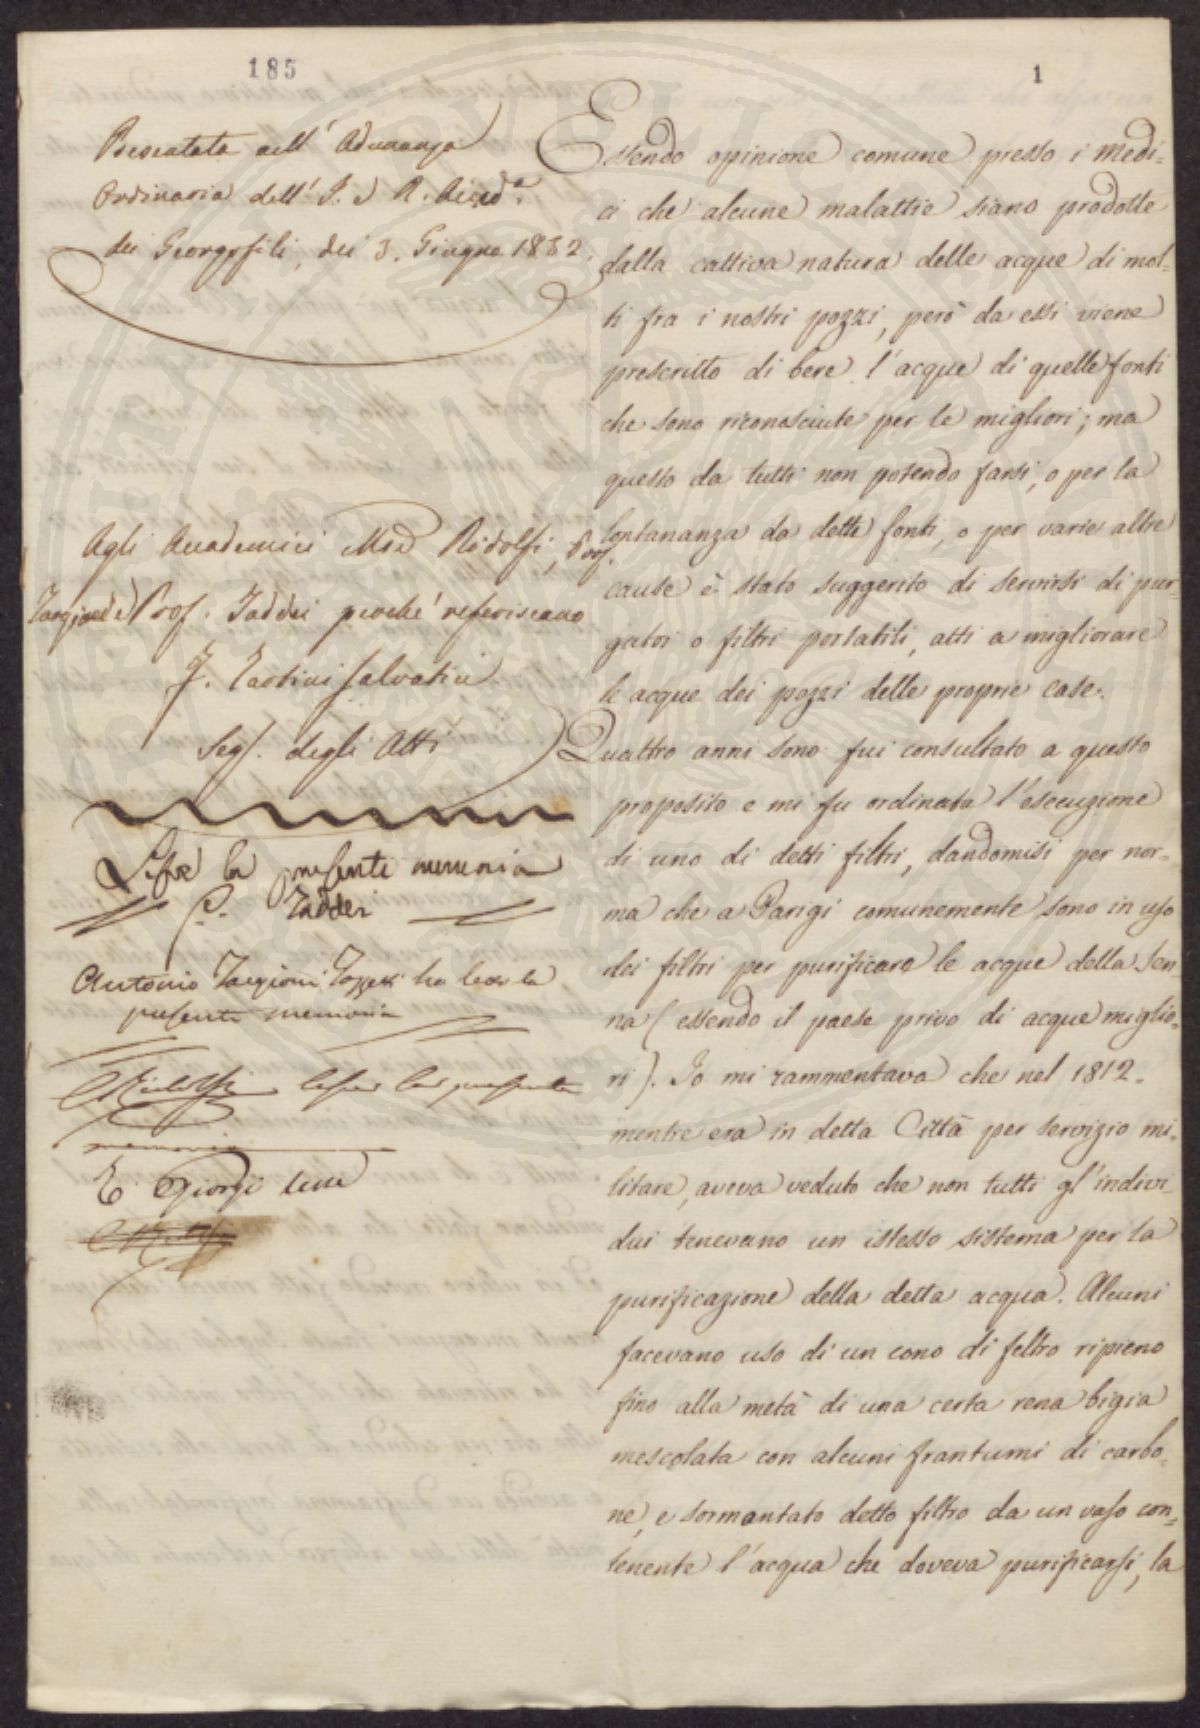 185
1
Presentata nell' Adunanza
Ordinaria dell' I. e R. Accad.a
dei Georgofili, dei 3. Giugno 1832.
Agli Accademici Mse Ridolfi, Prof.
Targioni e Prof. Taddei perché referiscano
F. Tartini Salvatici
Seg. degli Atti
Lesse la presente memoria
G. Taddei
Antonio Targioni Tozzetti ha letto la
presente memoria
CRidolfi lesse la presente
memoria
E. Giorgi lesse
Essendo opinione comune presso i Medi=
ci che alcune malattie siano prodotte
dalla cattiva natura delle acque di mol=
ti fra i nostri pozzi, però da essi viene
prescritto di bere l'acque di quelle fonti
che sono riconosciute per le migliori; ma
questo da tutti non potendo farsi, o per la
lontananza da dette fonti, o per varie altre
cause è stato suggerito di servirsi di pur=
gatoi o filtri portatili, atti a migliorare
le acque dei pozzi delle proprie case.
Quattro anni sono fui consultato a questo
proposito e mi fu ordinata l'esecuzione
di uno di detti filtri, dandomisi per nor=
ma che a Parigi comunemente sono in uso
dei filtri per purificare le acque della Sen=
na (essendo il paese privo di acque miglio=
ri). Io mi rammentava che nel 1812.
mentre era in detta Città per servizio mi=
litare, aveva veduto che non tutti gl'indivi=
dui tenevano un istesso sistema per la
purificazione della detta acqua. Alcuni
facevano uso di un cono di feltro ripieno
fino alla metà di una certa rena bigia
mescolata con alcuni frantumi di carbo=
ne, e sormontato detto filtro da un vaso con=
tenente l'acqua che doveva purificarsi, la